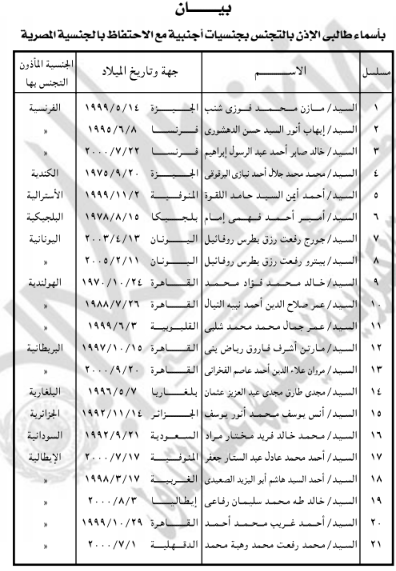 بيــان
بأسماء طالبى الإذن بالتجنس بجنسيات أجنبية مع الاحتفاظ بالجنسية المصرية
مسلسل الاســـم جهة وتاريخ الميلاد الجنسية المأذون التجنس بها
١ السيد/ مازن محمد فوزى شنب الجيزة ١٩٩٩/٥/١٤ الفرنسية
٢ السيد/ إيهاب أنور السيد حسن الدهشورى فرنسا ١٩٩٥/٦/٨ »
٣ السيد/ خالد صابر أحمد عبد الرسول إبراهيم فرنسا ٢٠٠٠/٧/٢٢ »
٤ السيد/ محمد محمد جلال أحمد نيازى البرقوقى الجيزة ١٩٧٥/٩/٢٠ الكندية
٥ السيد/ أحمد أيمن السيد حامد اللقوة المنوفية ١٩٩٩/١١/٢ الأسترالية
٦ السيد/ أمير أحمد فهمى إمام بلجيكا ١٩٧٨/٨/١٥ البلجيكية
٧ السيد/ جورج رفعت رزق بطرس روفائيل اليونان ٢٠٠٣/٤/١٣ اليونانية
٨ السيد/ بيترو رفعت رزق بطرس روفائيل اليونان ٢٠٠٥/٢/١١ »
٩ السيد/ خالد محمد فؤاد محمد القاهرة ١٩٧٠/١٠/٢٤ الهولندية
١٠ السيد/ عمر صلاح الدين أحمد نبيه النبال القاهرة ١٩٨٨/٧/٢٦ »
١١ السيد/ عمر جمال محمد محمد شلبى القليوبية ١٩٩٩/٦/٣ »
١٢ السيد/ مارتن أشرف فاروق رياض بنى القاهرة ١٩٩٧/١٠/١٥ البريطانية
١٣ السيد/ مروان علاء الدين أحمد عاصم الفخرانى القاهرة ٢٠٠٠/٩/٢٠ »
١٤ السيد/ مجدى طارق مجدى عبد العزيز عثمان بلغاريا ١٩٩٦/٥/٧ البلغارية
١٥ السيد/ أنس يوسف محمد أنور يوسف الجزائر ١٩٩٢/١١/١٤ الجزائرية
١٦ السيد/ محمد خالد فريد مختار مراد السعودية ١٩٩٢/٩/٢١ السودانية
١٧ السيد/ أحمد محمد عادل عبد الستار جعفر المنوفية ٢٠٠٠/٧/١٧ الإيطالية
١٨ السيد/ أحمد السيد هاشم أبو اليزيد الصعيدى الغربية ١٩٩٨/٣/١٧ »
١٩ السيد/ خالد طه محمد سليمان رفاعى إيطاليا ٢٠٠٠/٨/٣ »
٢٠ السيد/ أحمد غريب محمد أحمد القاهرة ١٩٩٩/١٠/٢٩ »
٢١ السيد/ محمد رفعت محمد وهبة محمد الدقهلية ٢٠٠٠/٧/١ »